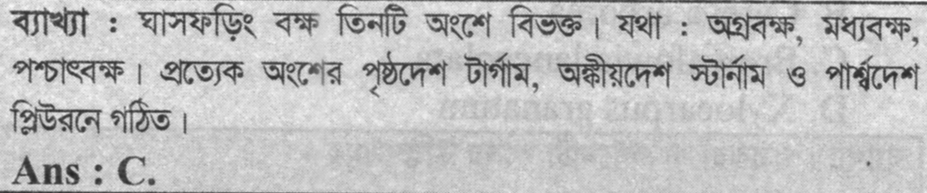 ব্যাখ্যা : ঘাসফড়িং বক্ষ তিনটি অংশে বিভক্ত। যথা : অগ্রবক্ষ, মধ্যবক্ষ,
পশ্চাৎবক্ষ। প্রত্যেক অংশের পৃষ্ঠদেশ টার্গাম, অঙ্কীয়দেশ স্টার্নাম ও পার্শ্বদেশ
প্লিউরনে গঠিত।
Ans : C.